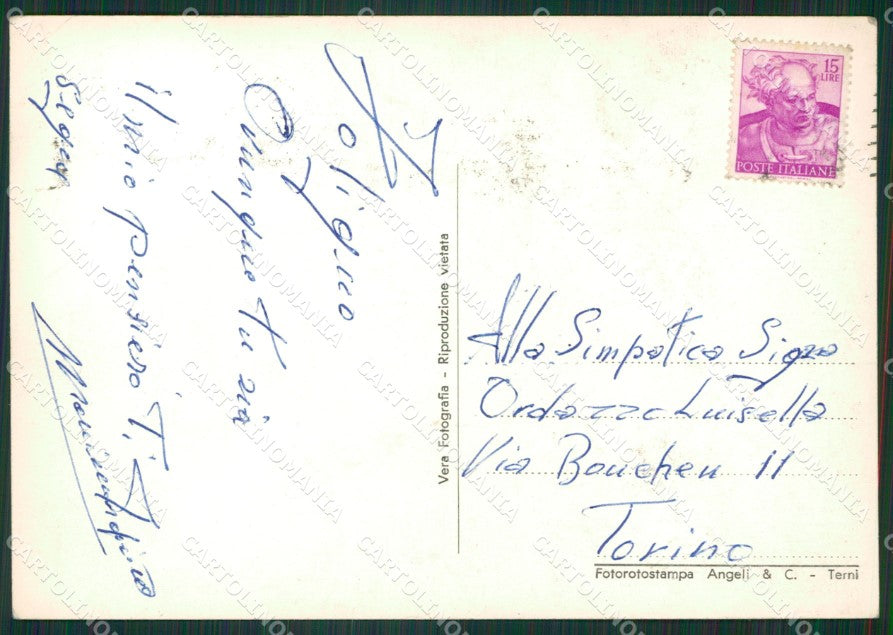 Foligno
Ovunque tu sia
il mio pensiero T'
segue
Vera Fotografia - Riproduzione vietata
15
LIRE
POSTE ITALIANE
Alla Simpatica Sig.ra
Ordazzo Luisella
Via Boucheu 11
Torino
Fotorotostampa Angeli & C. - Terni
CARTOLINOMANIA